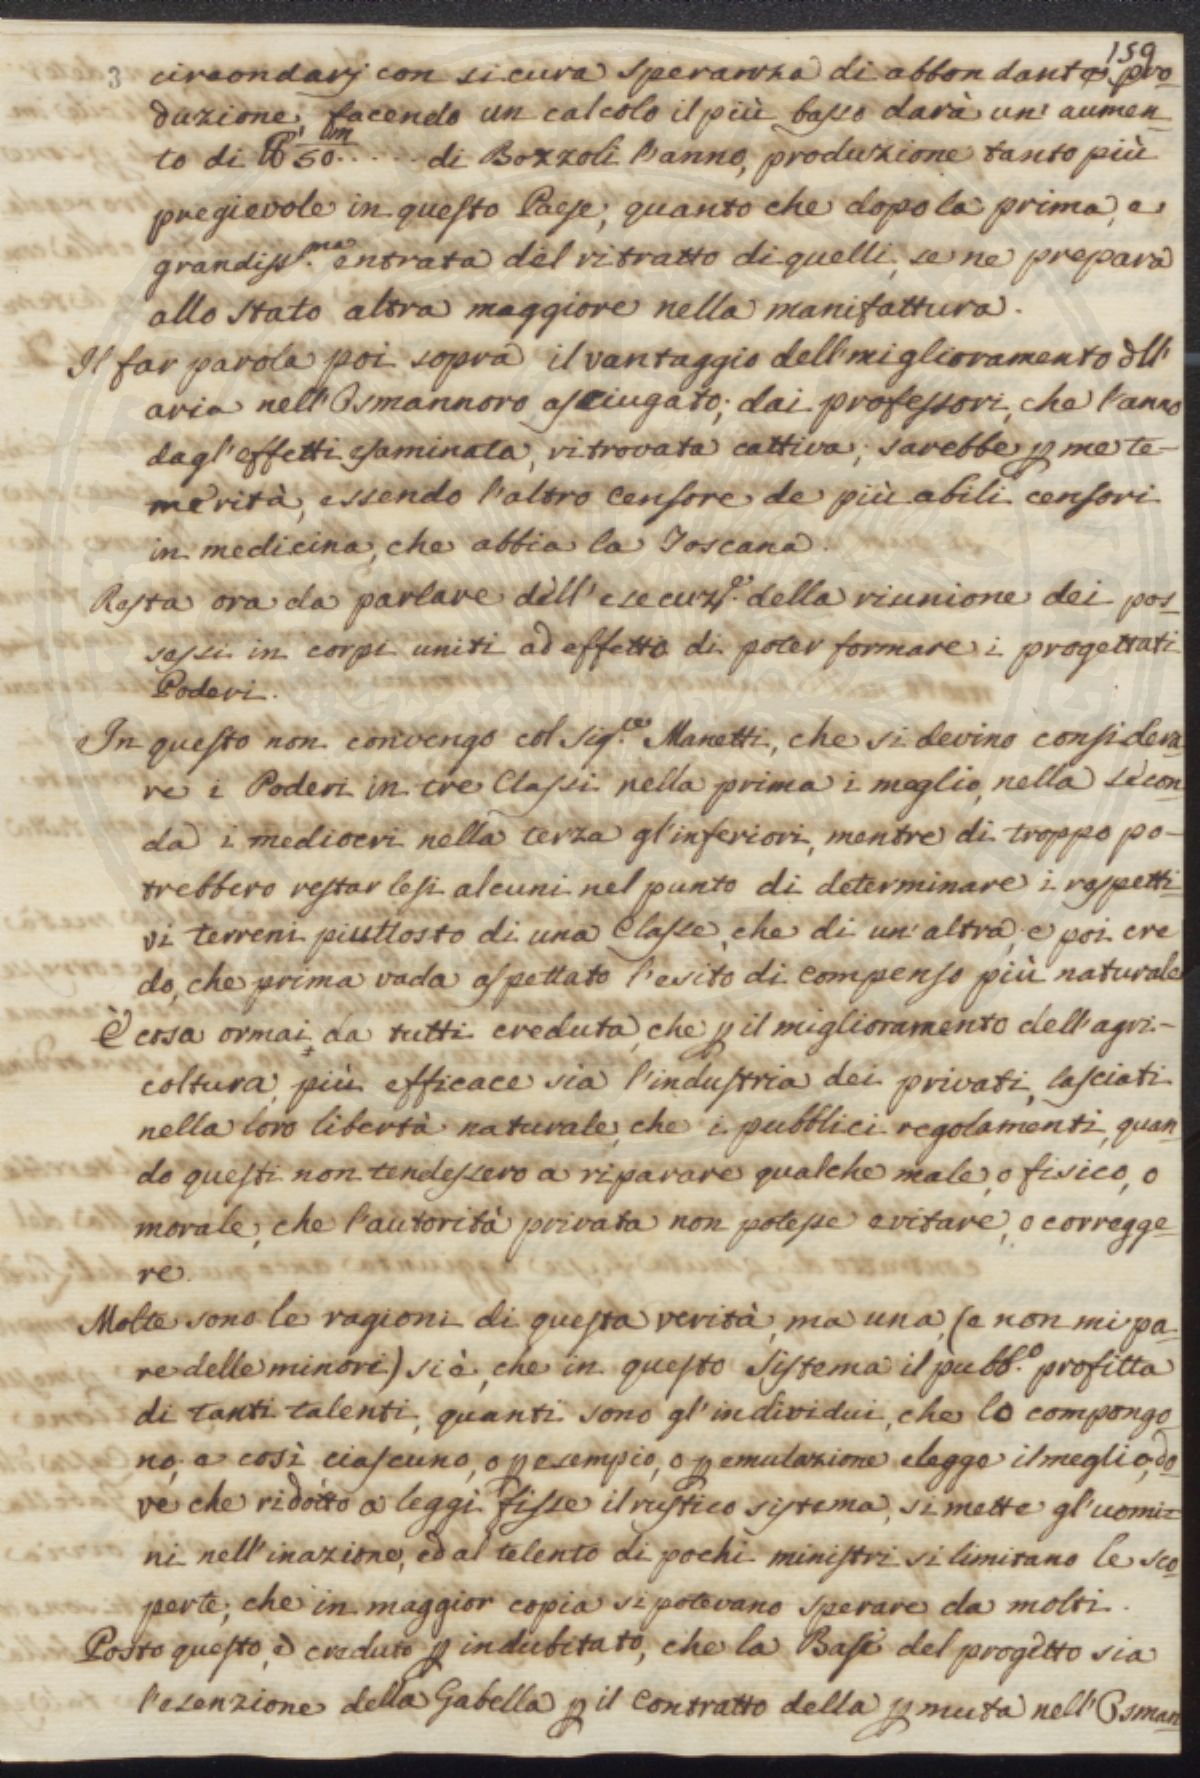 159
3 circondarj con sicura speranza di abbondante pro-
duzione, facendo un calcolo il più basso darà un' aumen-
to di lb 50.m . . . . di Bozzoli l'anno, produzione tanto più
pregievole in questo Paese, quanto che dopo la prima, e
grandiss.ma entrata del ritratto di quelli, se ne prepara
allo stato altra maggiore nella manifattura.
Il far parola poi sopra il vantaggio dell'miglioramento dll'
aria nell'Osmannoro asciugato; dai professori, che l'anno
dagl'effetti esaminata, ritrovata cattiva; sarebbe p me te-
merità, essendo l'altro Censore de più abili censori
in medicina, che abbia la Toscana.
Resta ora da parlare dell' esecuz.e della riunione dei pos-
sessi in corpi uniti ad effetto di poter formare i progettati
Poderi.
In questo non convengo col Sig.re Manetti, che si devino considera
re i Poderi in tre Classi nella prima i meglio, nella secon
da i mediocri nella terza gl'inferiori, mentre di troppo po-
trebbero restar lesi alcuni nel punto di determinare i respetti-
vi terreni piuttosto di una Classe, che di un'altra, e poi cre
do, che prima vada aspettato l'esito di compenso più naturale
È cosa ormai da tutti creduta, che p il miglioramento dell'agri-
coltura, più efficace sia l'industria dei privati, lasciati
nella loro libertà naturale, che i pubblici regolamenti, quan-
do questi non tendessero a riparare qualche male, o fisico, o
morale, che l'autorità privata non potesse evitare, o corregge-
re.
Molte sono le ragioni di questa verità, ma una, (e non mi pa-
re delle minori) si è, che in questo Sistema il pubb.o profitta
di tanti talenti, quanti sono gl'individui, che lo compongo-
no, e così ciascuno, o p esempio, o p emulazione elegge il meglio, do-
ve che ridotto a leggi fisse il rustico sistema, si mette gl'uomi-
ni nell'inazione, ed al telento di pochi ministri si limitano le sco-
perte, che in maggior copia si potevano sperare da molti.
Posto questo, è creduto p indubitato, che la Base del progetto sia
l'esenzione della Gabella p il Contratto della pmuta nell'Osman